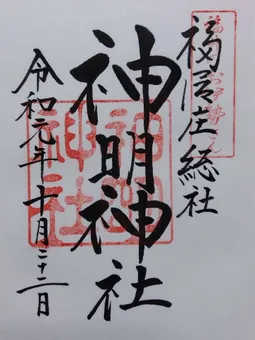 福居庄総社
神明神社
令和元年十月二十二日
神明
神社